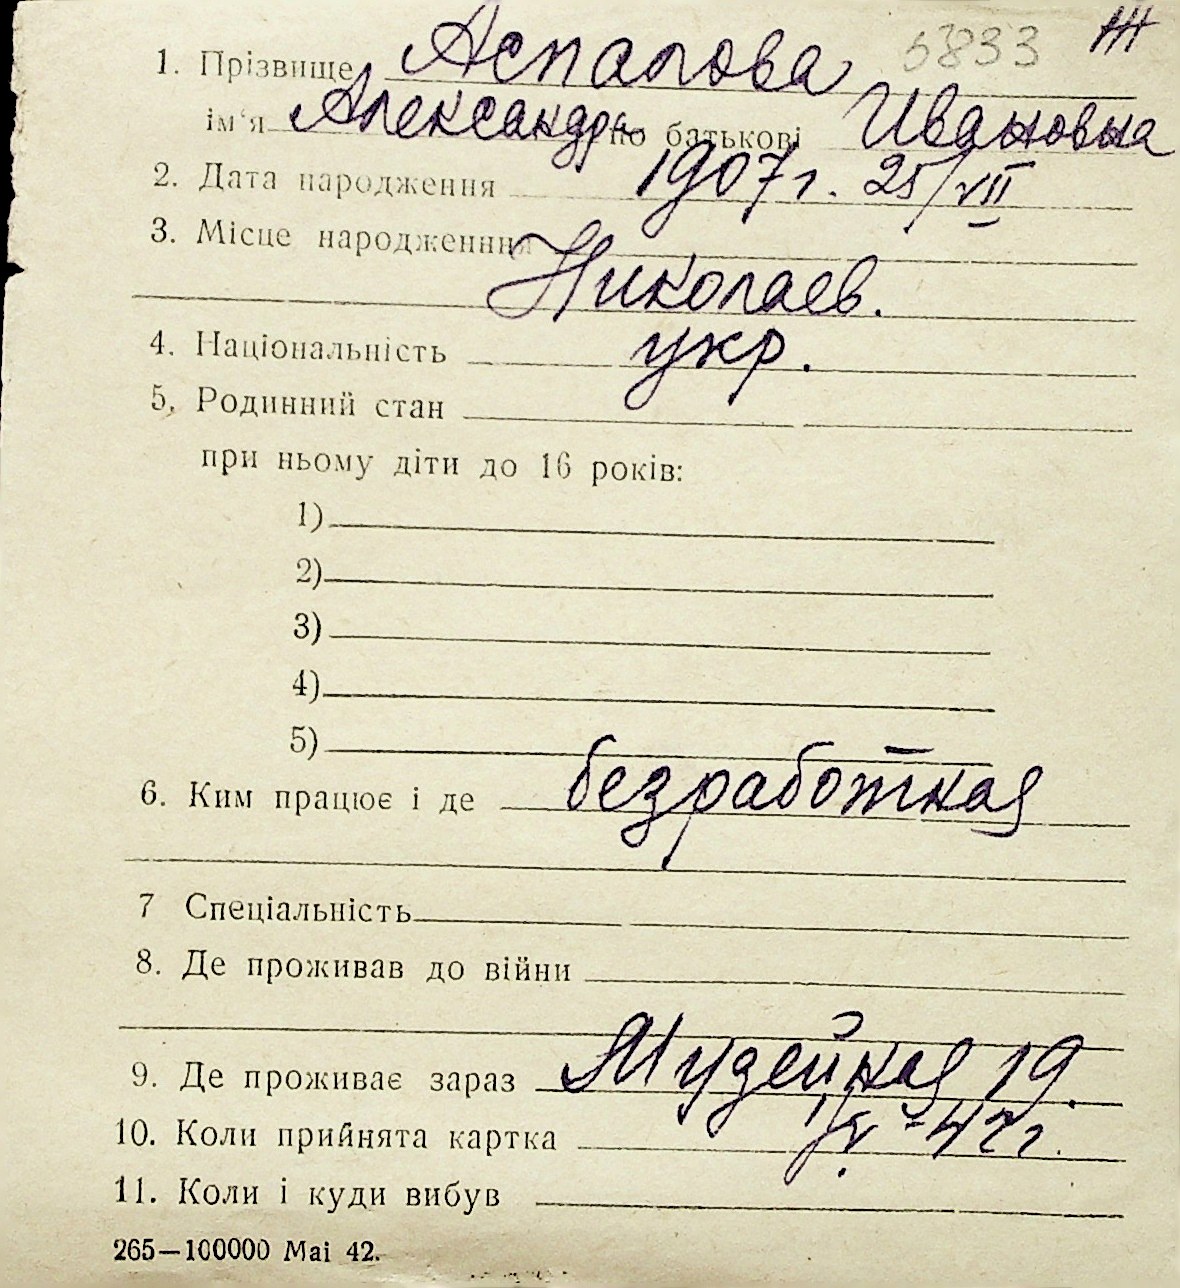 5833 Ж
1. Прізвище Аспалова
ім'я Александра по батькові Ивановна
2. Дата народження 1907 г. 25/VII
3. Місце народженння
Николаев.
4. Національність укр.
5, Родинний стан
при ньому діти до 16 років:
1)
2)
3)
4)
5)
6. Ким працює і де безработная
7 Спеціальність
8. Де проживав до війни
9. Де проживає зараз Музейная 19.
10. Коли прийнята картка 1/V-42 г.
11. Коли і куди вибув
265—100000 Mai 42.